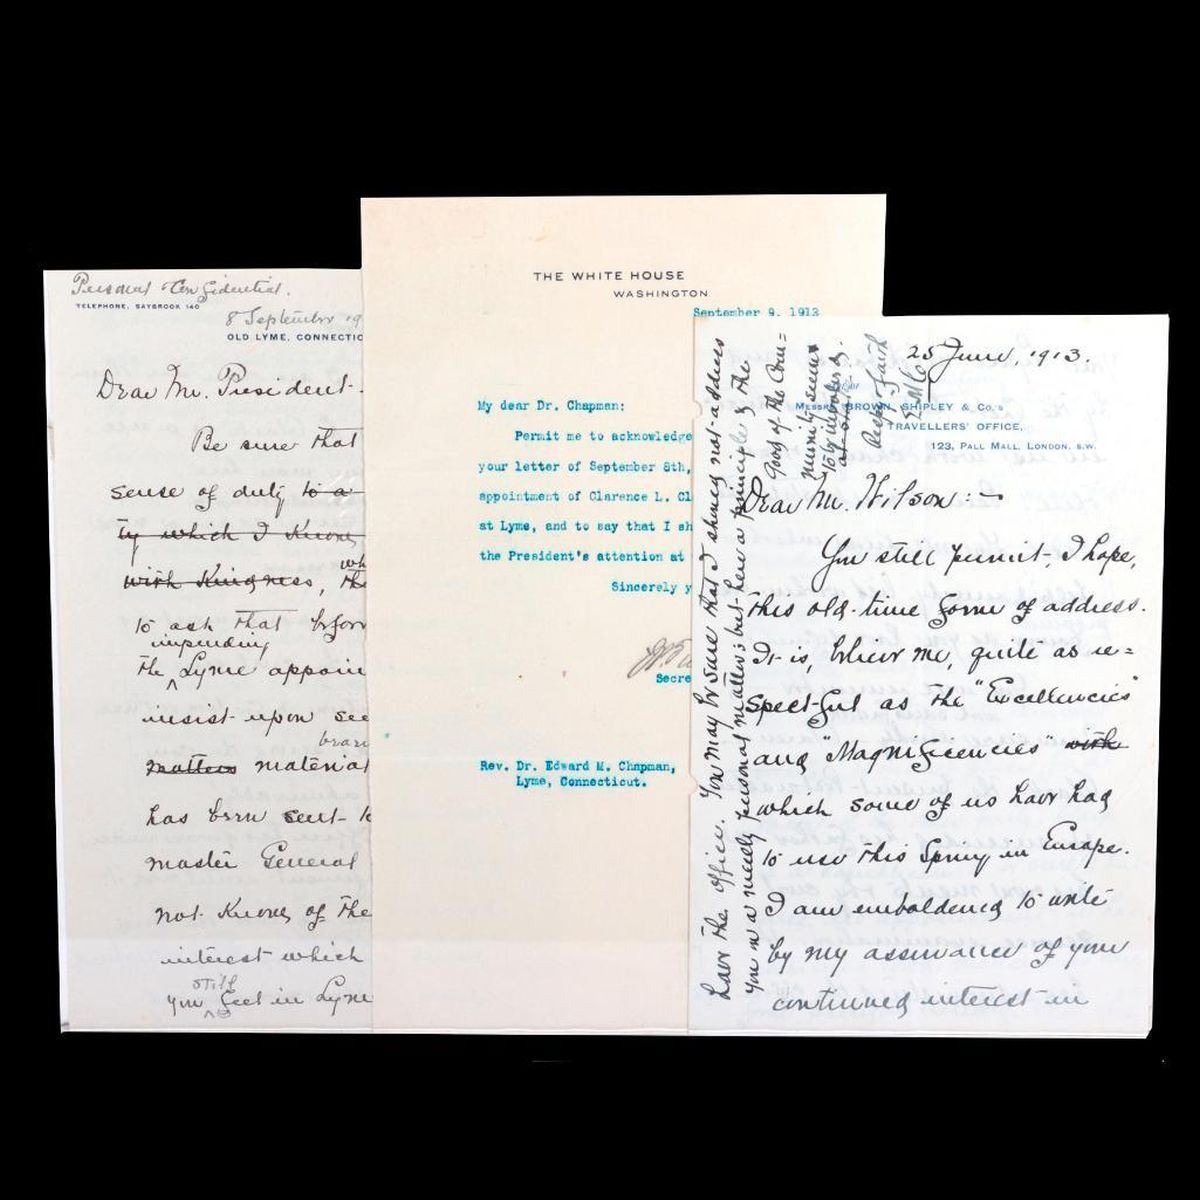 Personal & Confidential.
TELEPHONE, SAYBROOK 140
8 September 19
OLD LYME, CONNECTIC
Dear Mr. President-
Be sure that
sense of duty to a
ty which I know
with kindness, the
wh
to ask that before
impending
the Lyme appoin
insist upon see
bran
matters material
has been sent to
master General
not know of the
interest which
still
you feel in Lyme
THE WHITE HOUSE
WASHINGTON
September 9, 1913
My dear Dr. Chapman:
Permit me to acknowledge
your letter of September 8th,
appointment of Clarence L. Cl
at Lyme, and to say that I sh
the President's attention at
Sincerely y
Secre
Rev. Dr. Edward M. Chapman,
Lyme, Connecticut.
25 June, 1913.
MESSRS BROWN, SHIPLEY & CO.'S
TRAVELLERS' OFFICE,
123, PALL MALL, LONDON, S.W.
Dear Mr. Wilson:-
You still permit, I hope,
this old-time form of address.
It is, believe me, quite as re=
spectful as the "Excellencies"
and "Magnificencies" with
which some of us have had
to use this Spring in Europe.
I am emboldened to write
by my assurance of your
continued interest in
have the office. You may be sure that I should not address
you in a merely personal matter; but here a principle & the
good of the Com=
munity seem
to be involved
at stake